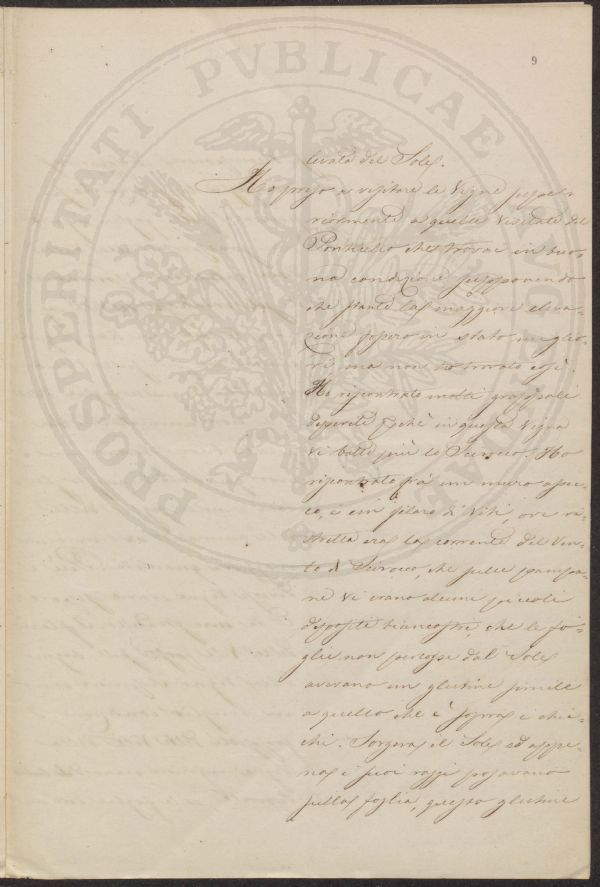 9
PROSPERITATI PVBLICAE
levata del Sole.
Ho preso a visitare le Vigne supe-
riormente a quelle visitate del
Ponticello che trovai in buo-
na condizione supponendo
che stante la maggiore eleva-
zione fossero in stato miglio-
re, ma non ho trovato così.
Ho riscontrato molti grappoli
deperiti perchè in questa Vigna
vi batte più lo Scirocco. Ho
riscontrato frà un muro a sec-
co, e un filare di Viti, ove ri-
stretta era la corrente del Ven-
to di Scirocco, che sulle pampa-
ne vi erano alcuni piccoli
depositi biancastri, che le fo-
glie non percosse dal Sole
avevano un glutine simile
a quello che è sopra i chic-
chi. Sorgeva il Sole ed appe-
na i suoi raggi posavano
sulla foglia, questo glutine